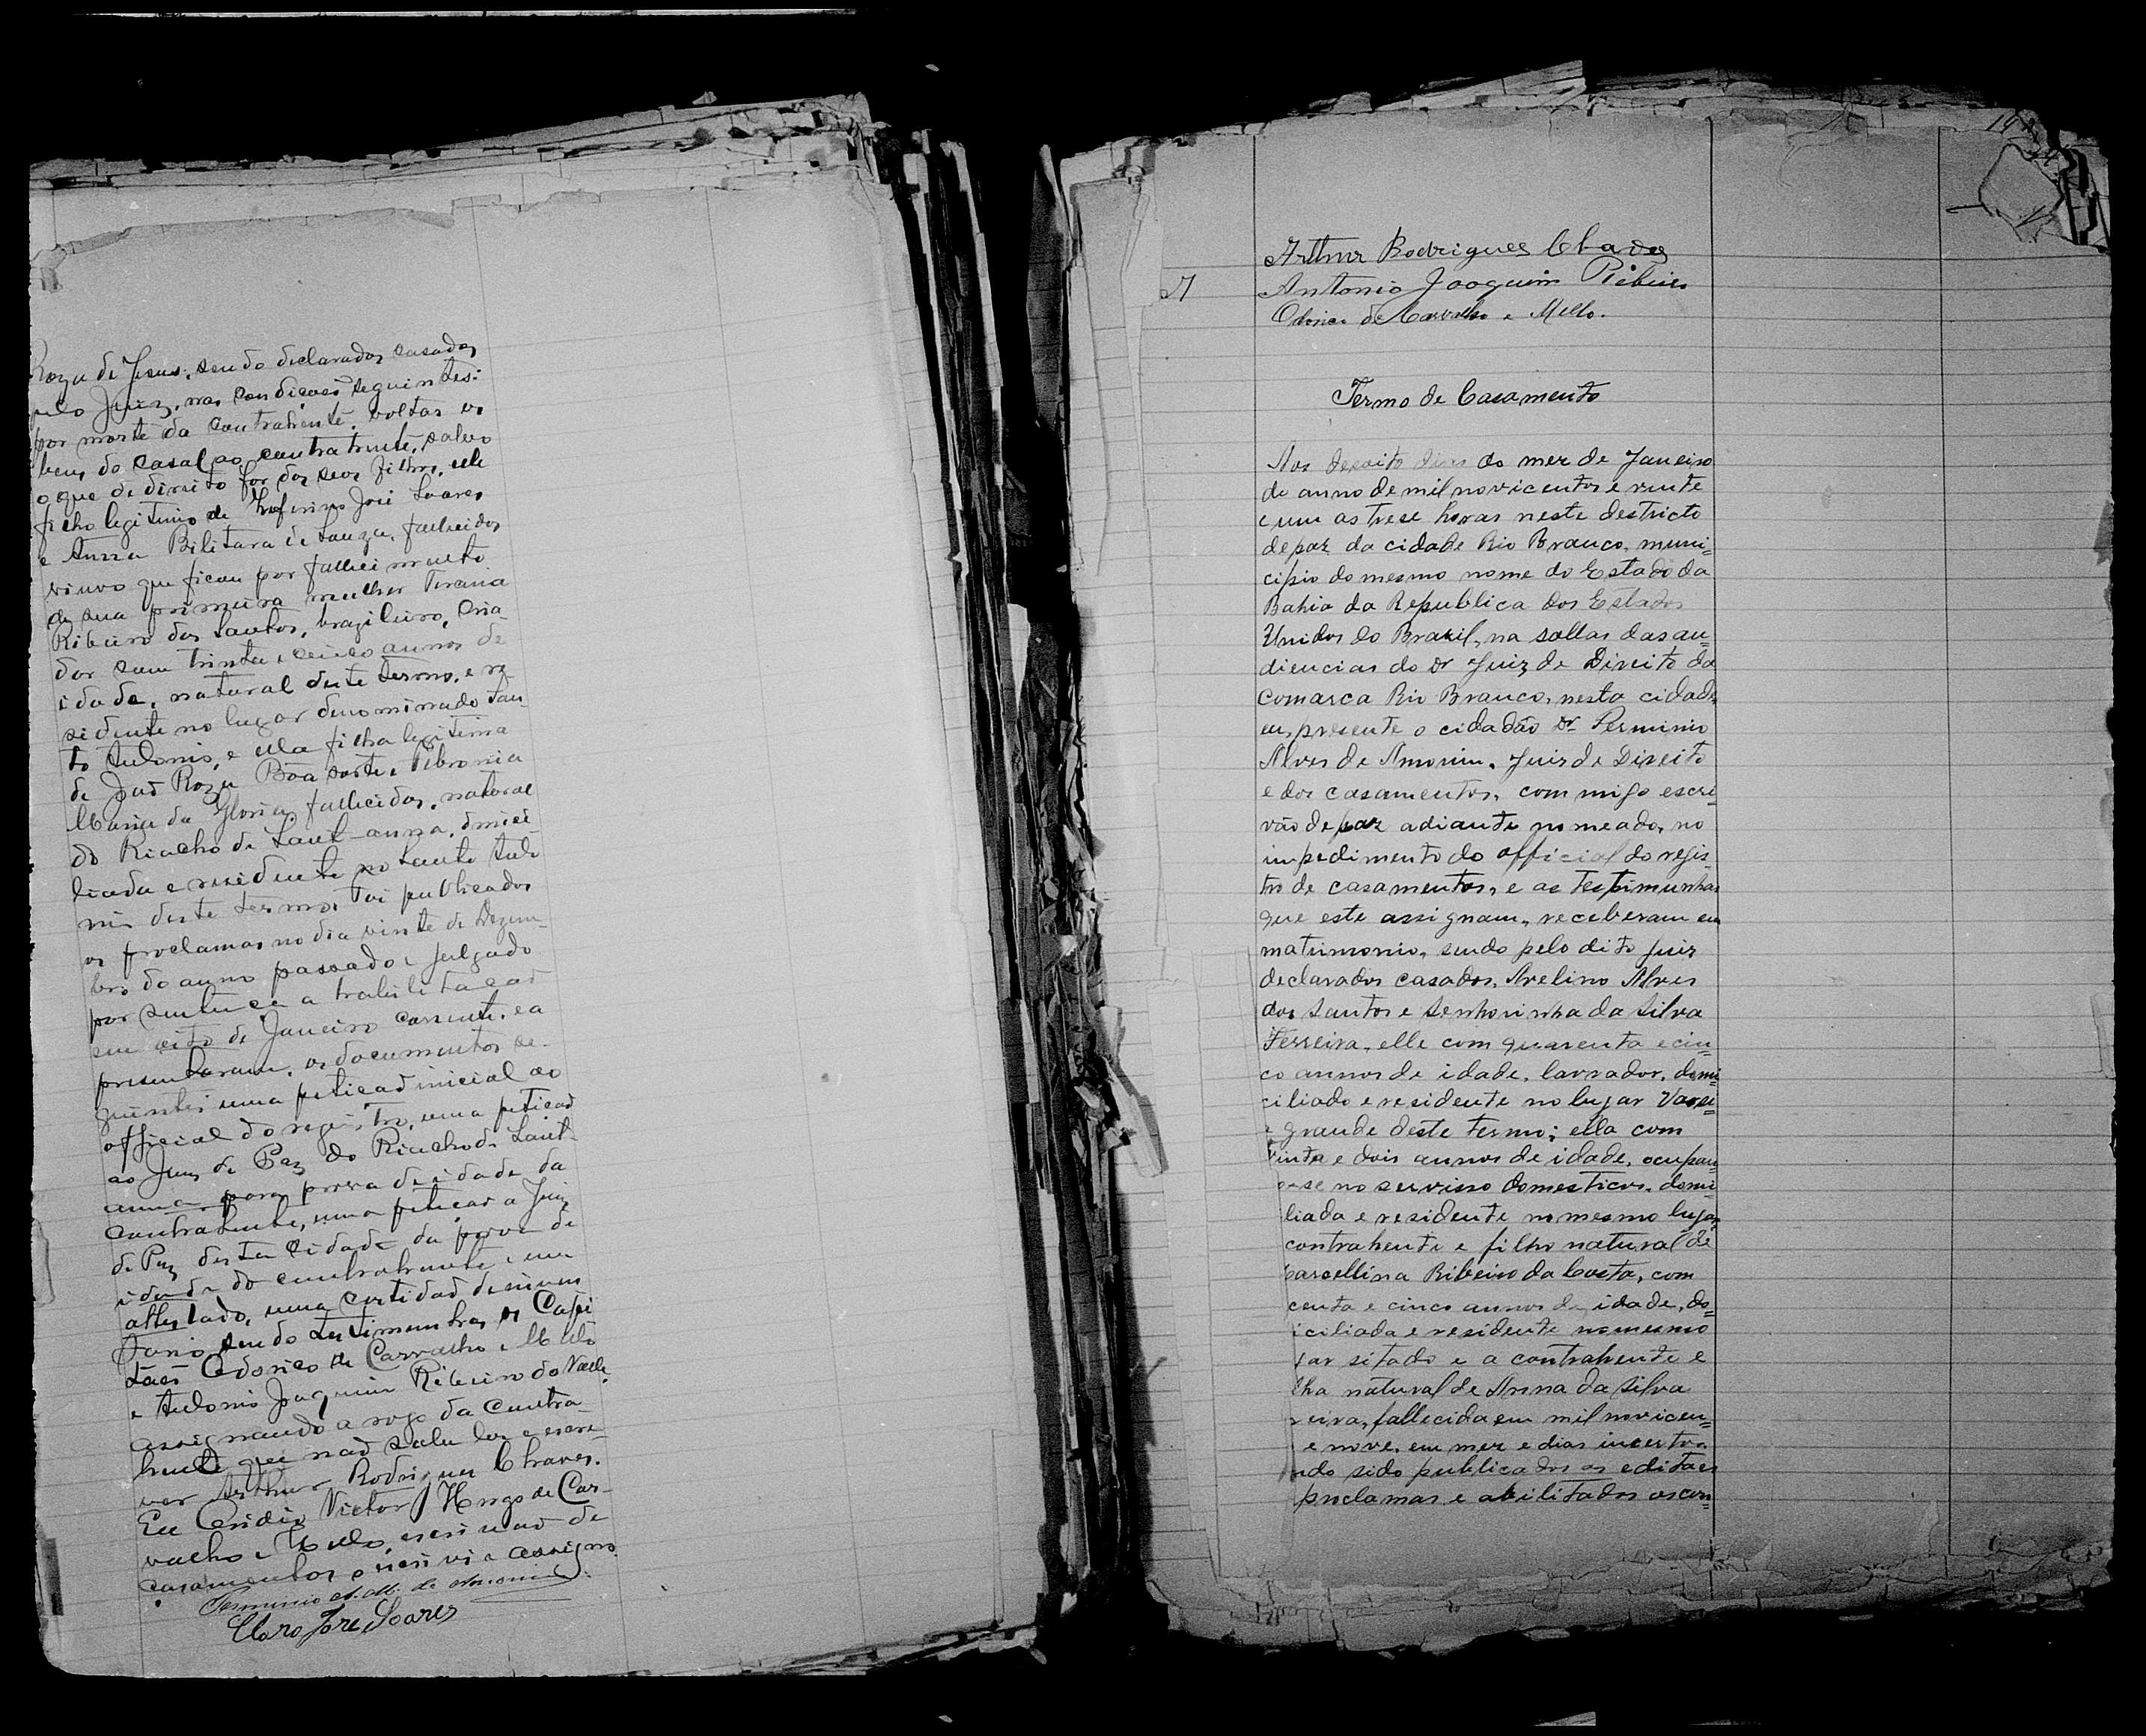 Roza de Jesus, sendo declarados casados
pelo Juiz, nas condicoes seguintes:
por morte da contrahente, voltar os
bens do casal ao contratrente, salvo
o que de direito for dos seos filhos, elle
filho legitimo de Zeferino José Soares
e Anna Bilitara de Souza, fallecidos
viuvo que ficou por fallecimento
de sua primeira mulher Tirania
Ribeiro dos Santos, brazileiro, cria-
dor com trinta e cinco annos de
idade, natural deste termo, e re-
sidente no lugar denominado San-
to Antonio, e ella filha legitima
de José Roza Bôa sorte e Febronia
Maria da Gloria, fallecidos, natural
do Riacho de Sant-anna, domici
liada e residente no Santo Anto
nio deste termo. Foi publicados
os proclamas no dia vinte de Dezem-
bro do anno passado e julgado
por sentença a habilitacaõ
em oito de Janeiro corrente, e a
presentaram, os documentos se-
guintes uma peticaõ inicial ao
official do registro, uma peticaõ
ao Juiz de Paz do Riacho de Sant-
anna para prova de idade da
contrahente, uma peticaõ a Juiz
de Paz desta cidade da prova de
idade do contrahente, um
attestado, uma certidaõ de inven
tario, sendo testimunhas os Capi
tães Odorico de Carvalho e Mello
e Antonio Joaquim Ribeiro do Valle,
assignando a rogo da contra-
hente que naõ sabe ler e escre-
ver Arthur Rodrigues Chaves.
Eu Victor Hugo de Car-
valho e Mello, escrivaõ de
casamentos o escrevi e assigno.
Perminio A. de Amorim
Claro Jose Soares
Arthur Rodrigues Chaves
Antonio Joaquim Ribeiro
Odorico de Carvalho e Mello.
Termo de Casamento
Aos desoito dias do mez de Janeiro
do anno de mil novicentos e vinte
e um as trese horas neste destricto
de paz da cidade Rio Branco, muni-
cipio do mesmo nome do Estado da
Bahia da Republica dos Estados
Unidos do Brazil, na sallas das au-
diencias do Dr Juiz de Direito da
comarca Rio Branco, nesta cidade
eu, presente o cidadão Dr. Perminio
Alves de Amorim, Juiz de Direito
e dos casamentos, commigo escri-
vão de paz adiante nomeado, no
impedimento do official do regis-
tro de casamentos, e as testimunhas
que este assignam, receberam em
matrimonio, sendo pelo dito juiz
declarados casados, Avelino Alves
dos Santos e Senhorinha da Silva
Ferreira, elle com quarenta e cin-
co annos de idade, lavrador, domi-
ciliado e residente no lugar Varei-
grande deste termo; ella com
vinta e dois annos de idade, ocupan
o-se no servisso domesticos, domi-
liada e residente no mesmo lugar
contrahente e filho natural de
arcellina Ribeiro da Costa, com
centa e cinco annos de idade, do-
iciliada e residente no mesmo
gar sitado e a contrahente e
lha natural de Anna da Silva
reira, fallecida em mil novicen-
e nove, em mez e dias incertos
ndo sido publicados os editaes
proclamas e abilitados os con